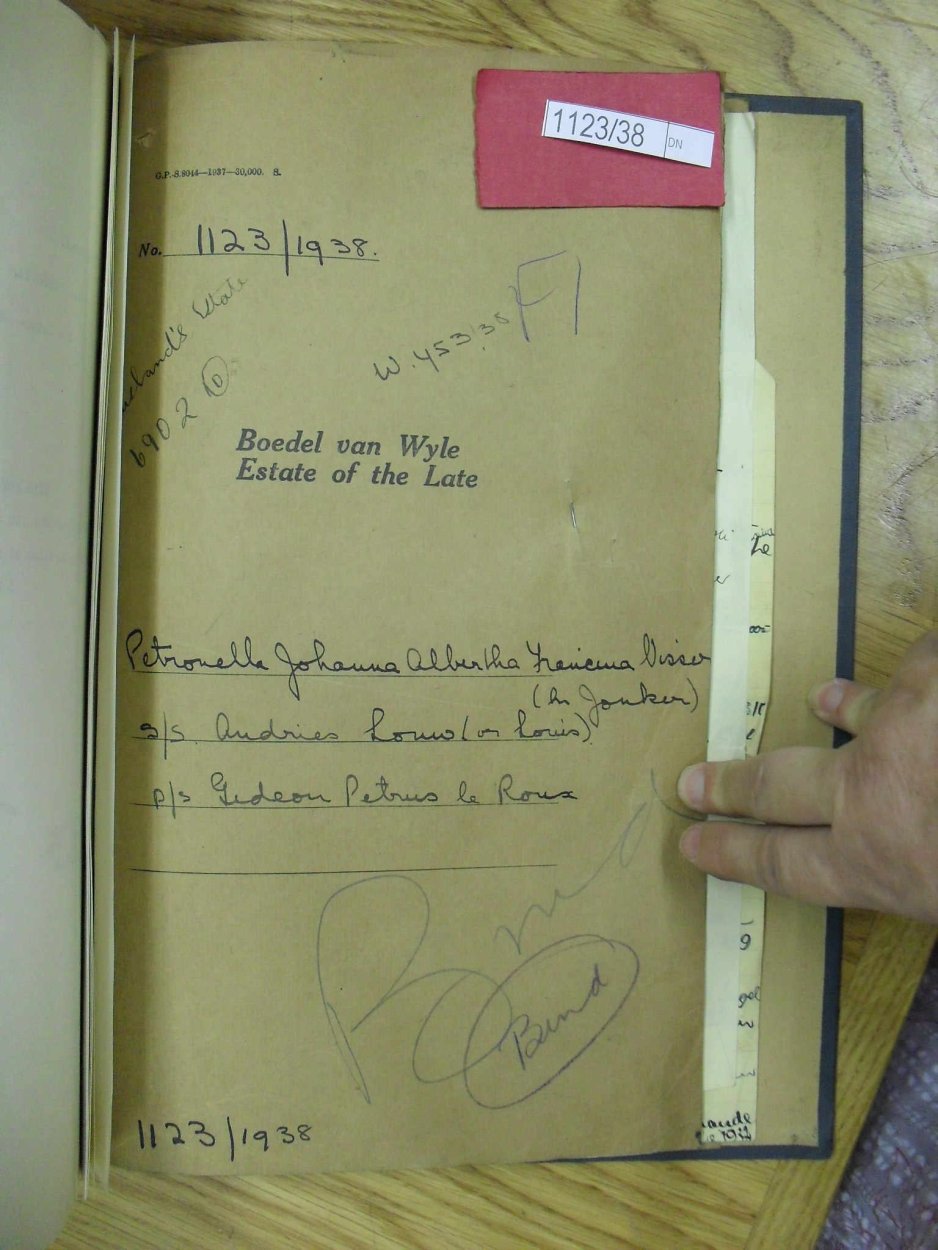 1123/38 DN
G.P.-S.8044—1937—30,000. S.
No. 1123/1938.
F1
W. 453/38
husband's Estate
6902 (D)
Boedel van Wyle
Estate of the Late
Petronella Johanna Albertha Francina Visser
(br Jonker)
s/s. Andries Louw (or Louis)
p/s Gideon Petrus le Roux
Bond
Bond
1123/1938